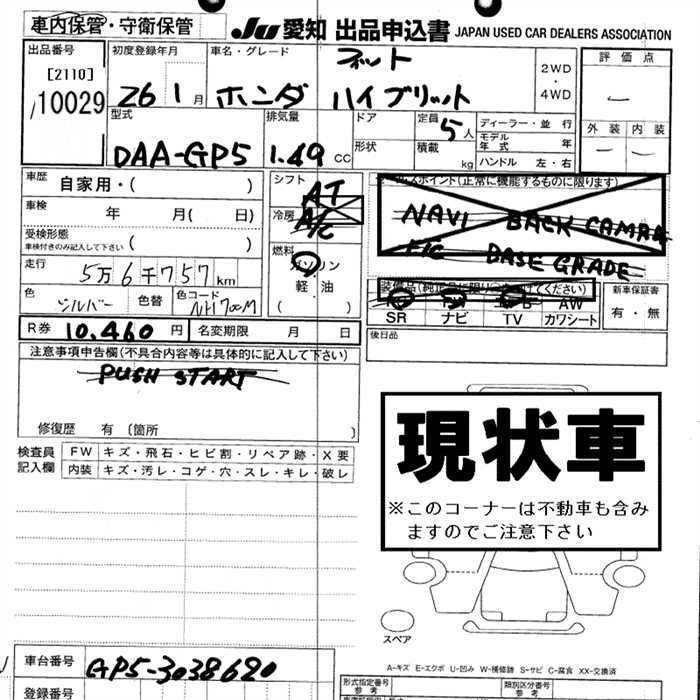 車内保管・守衛保管
JU 愛知 出品申込書 JAPAN USED CAR DEALERS ASSOCIATION
出品番号
[2110]
10029
初度登録年月
26 1月
車名・グレード
フィット
ホンダ ハイブリット
2WD
・
4WD
評価点
外装 内装
型式
DAA-GP5
排気量
1.49 CC
ドア
形状
定員 5人
積載 kg
ディーラー・並行
モデル年式 年
ハンドル 左・右
車歴
自家用・( )
車検
年 月( 日)
受検形態
車検付きのみ記入して下さい ( )
走行
5万6千757km
色
シルバー
色替
色コード
NH700M
シフト
AT
冷房
A/C
燃料
ガソリン
軽・油
( )
セールスポイント(正常に機能するものに限ります)
NAVI BACK CAMARA
F/C BASE GRADE
装備品(純正品に限り○をつけてください)
AW
SR ナビ TV カワシート
新車保証書
有・無
R券 10,460円 名変期限 月 日
後日品
注意事項申告欄(不具合内容等は具体的に記入して下さい)
PUSH START
修復歴 有〔箇所 〕
検査員
記入欄
FW キズ・飛石・ヒビ割・リペア跡・X要
内装 キズ・汚レ・コゲ・穴・スレ・キレ・破レ
現状車
※このコーナーは不動車も含み
ますのでご注意下さい
スペア
A-キズ E-エクボ U-凹み W-補修跡 S-サビ C-腐食 XX-交換済
車台番号 GP5-3038620
登録番号
形式指定番号
参考
類別区分番号
参考